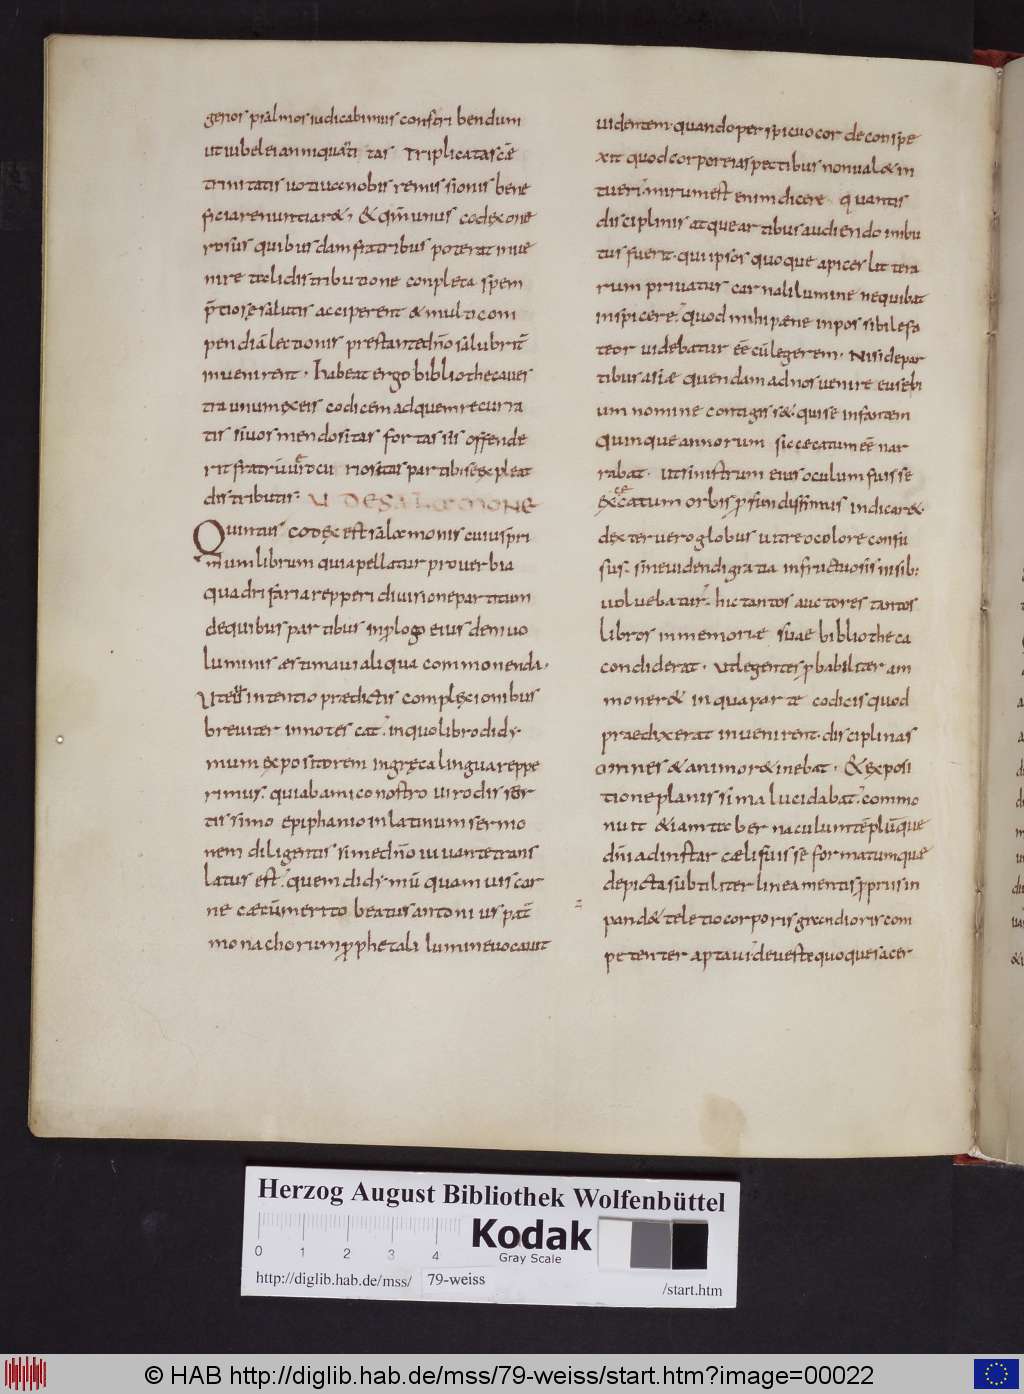 genos psalmos iudicabimus conscribendum
ut iubeleian iniquitatis Triplicatascē
trinitatis uotiuae nobis remissionis bene
ficia renuntiar&; & qm̄ unus codex one
rosus quibusdam fratribus poterat inue
nire ttoli distributione conpleta spem
p̄tiose salutis acciperent & multi com
pendia lectionis prestante dn̄o salubrit̄
inuenirent · habeat ergo bibliotheca ues
tra unum ex eis codicem ad quem recurra
tis si uos mendositas fortassis offende
rit fratrū ur̄ot cu riositas partib; se expleat
distributis; V DE SALOMONE
Quintus codex est salomonis cuius pri
mum librum qui apellatur prouerbia
quadrifaria repperi diuisione partitum
de quibus partibus in plogo eius denuo
luminis aestimaui aliqua commonenda ·
Ut eius intentio praedictis complexionibus
breuiter innotescat; in quo libro didy
mum expositorem in greca lingua reppe
rimus; qui ab amico nostro uiro disser
tissimo epiphanio in latinum sermo
nem diligentissime dn̄o iuuante trans
latus est; quem didymū quamuis car
ne caecū merito beatus antonius pat̄
monachorum pphetali lumine uocauit
uidentem · quando perspicuo corde conspe
xit quod corporeis aspectibus non ual& in
tueri; mirum est enim dicere quantis
disciplinis atque artibus audiendo inbu
tus fuerit · qui ipsos quoque apices litterа
rum priuatus carnali lumine nequibat
inspicere; quod mihi paene inpossibile fa
teor uidebatur eē cū legerem · Nisi de par
tibus asiae quendam ad nos uenire eusebi
um nomine contigiss&; qui se infantem
quinque annorum sic caecatum eē nar
rabat · ut sinistrum eius oculum fuisse
excęcatum orbis pfundissimus indicar& ·
dexter uero globus uitreo colore confu
sus; sine uidendi gratia infructuosis uisib;
uoluebatur; hic tantos auctores tantos
libros in memoriae suae bibliotheca
condiderat · ut legentes pbabiliter am
moner& in qua parte codicis quod
praedixerat inuenirent · disciplinas
omnes & animo r&inebat · & exposi
tione planissima lucidabat; commo
nuit &iam ttobernaculum tēplūque
dn̄i ad instar caeli fuisse formatum que
depicta subtiliter lineamentis pprus in
pand&te letio corporis grandioris com
petenter aptaui; de ueste quoque sacer
Herzog August Bibliothek Wolfenbüttel
0 1 2 3 4
Kodak
Gray Scale
http://diglib.hab.de/mss/ 79-weiss /start.htm
© HAB http://diglib.hab.de/mss/79-weiss/start.htm?image=00022